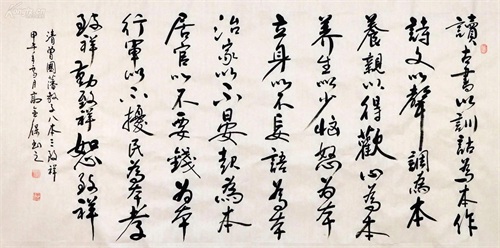 讀古書以訓詁為本作
詩文以聲調為本
養親以得歡心為本
养生以少惱怒为本
立身以不妄語為本
治家以不晏起為本
居官以不要錢为本
行軍以不擾民為本孝
致祥勤致祥恕致祥
清曾國藩教子八本三致祥
甲午年